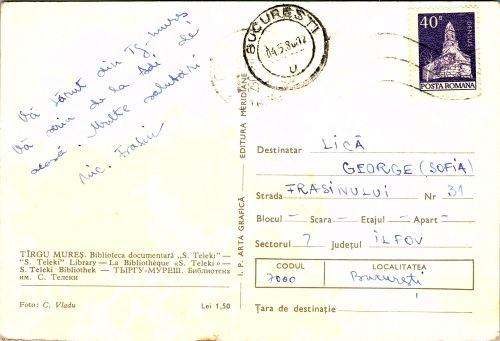 Vă sărut din Tg-mureș
Vă scriu de la Adi de
acasă. Multe salutări
Nic. Frasin
TÎRGU MUREȘ. Biblioteca documentară „S. Teleki" —
"S. Teleki" Library — La Bibliothèque «S. Teleki» —
S. Teleki Bibliothek — ТЫРГУ-МУРЕШ. Библиотека
им. С. Телеки
Foto: C. Vladu
Lei 1,50
I. P. ARTA GRAFICĂ — EDITURA MERIDIANE
BUCUREȘTI
40
DENSUȘ
POSTA ROMANA
Destinatar LICĂ
GEORGE (SOFIA)
Strada FRASINULUI Nr 31
Blocul – Scara – Etajul – Apart –
Sectorul 7 Județul ILFOV
CODUL LOCALITATEA
7000 București
Țara de destinație